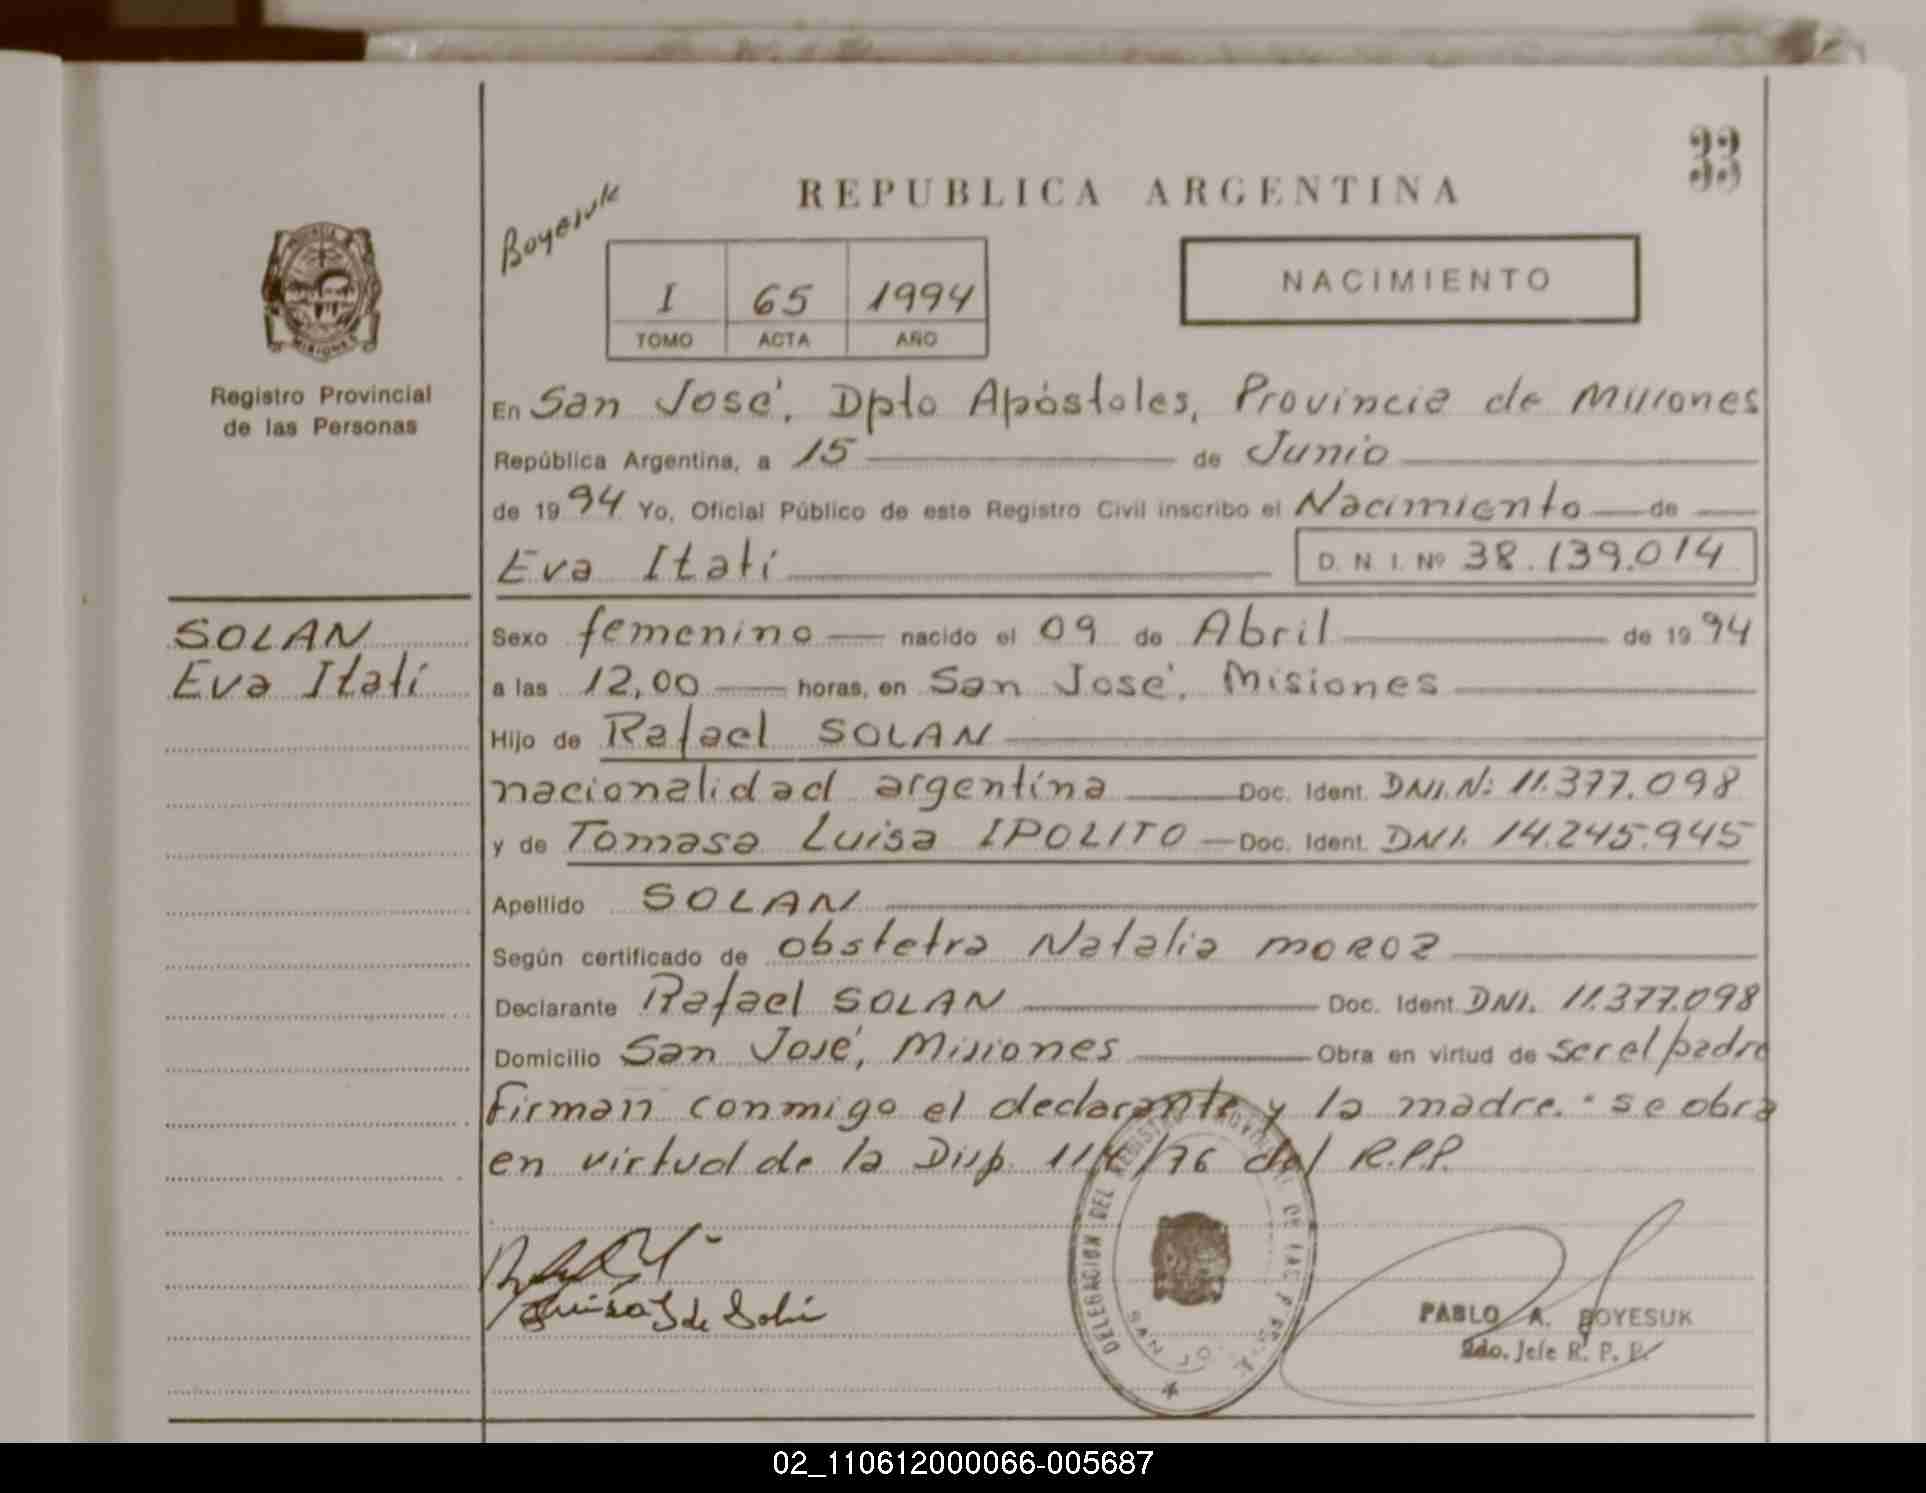 33
REPUBLICA ARGENTINA
Boyesuk
NACIMIENTO
I 65 1994
TOMO ACTA AÑO
MISIONES
Registro Provincial
de las Personas
En San José, Dpto Apóstoles, Provincia de Misiones
República Argentina, a 15 de Junio
de 1994 Yo, Oficial Público de este Registro Civil inscribo el Nacimiento de
Eva Itatí D. N. I. Nº 38.139.014
SOLAN
Eva Itatí
Sexo femenino nacido el 09 de Abril de 1994
a las 12,00 horas, en San José, Misiones
Hijo de Rafael SOLAN
nacionalidad argentina Doc. Ident. DNI. N: 11.377.098
y de Tomasa Luisa IPOLITO Doc. Ident. DNI. 14.245.945
Apellido SOLAN
Según certificado de obstetra Natalia MOROZ
Declarante Rafael SOLAN Doc. Ident. DNI. 11.377.098
Domicilio San José, Misiones Obra en virtud de ser el padre
Firman conmigo el declarante y la madre.- se obra
en virtud de la Disp. 114/76 del R.P.P.
DELEGACION DEL REGISTRO PROVINCIAL DE LAS
SAN
PABLO A. BOYESUK
2do. Jefe R. P. P.
02_110612000066-005687